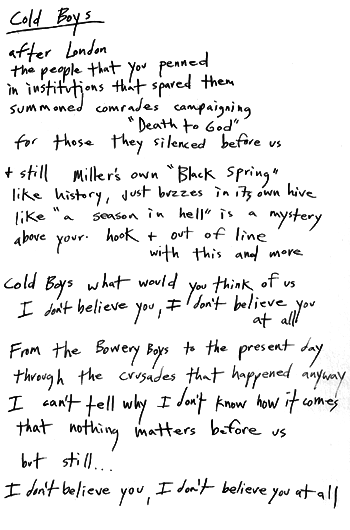 Cold Boys
after London
the people that you penned
in institutions that spared them
summoned comrades campaigning
"Death to God"
for those they silenced before us
+ still Miller's own "Black Spring"
like history, just buzzes in its own hive
like "a season in hell" is a mystery
above your hook + out of line
with this and more
Cold Boys what would you think of us
I don't believe you, I don't believe you
at all
From the Bowery Boys to the present day
through the crusades that happened anyway
I can't tell why I don't know how it comes
that nothing matters before us
but still...
I don't believe you, I don't believe you at all